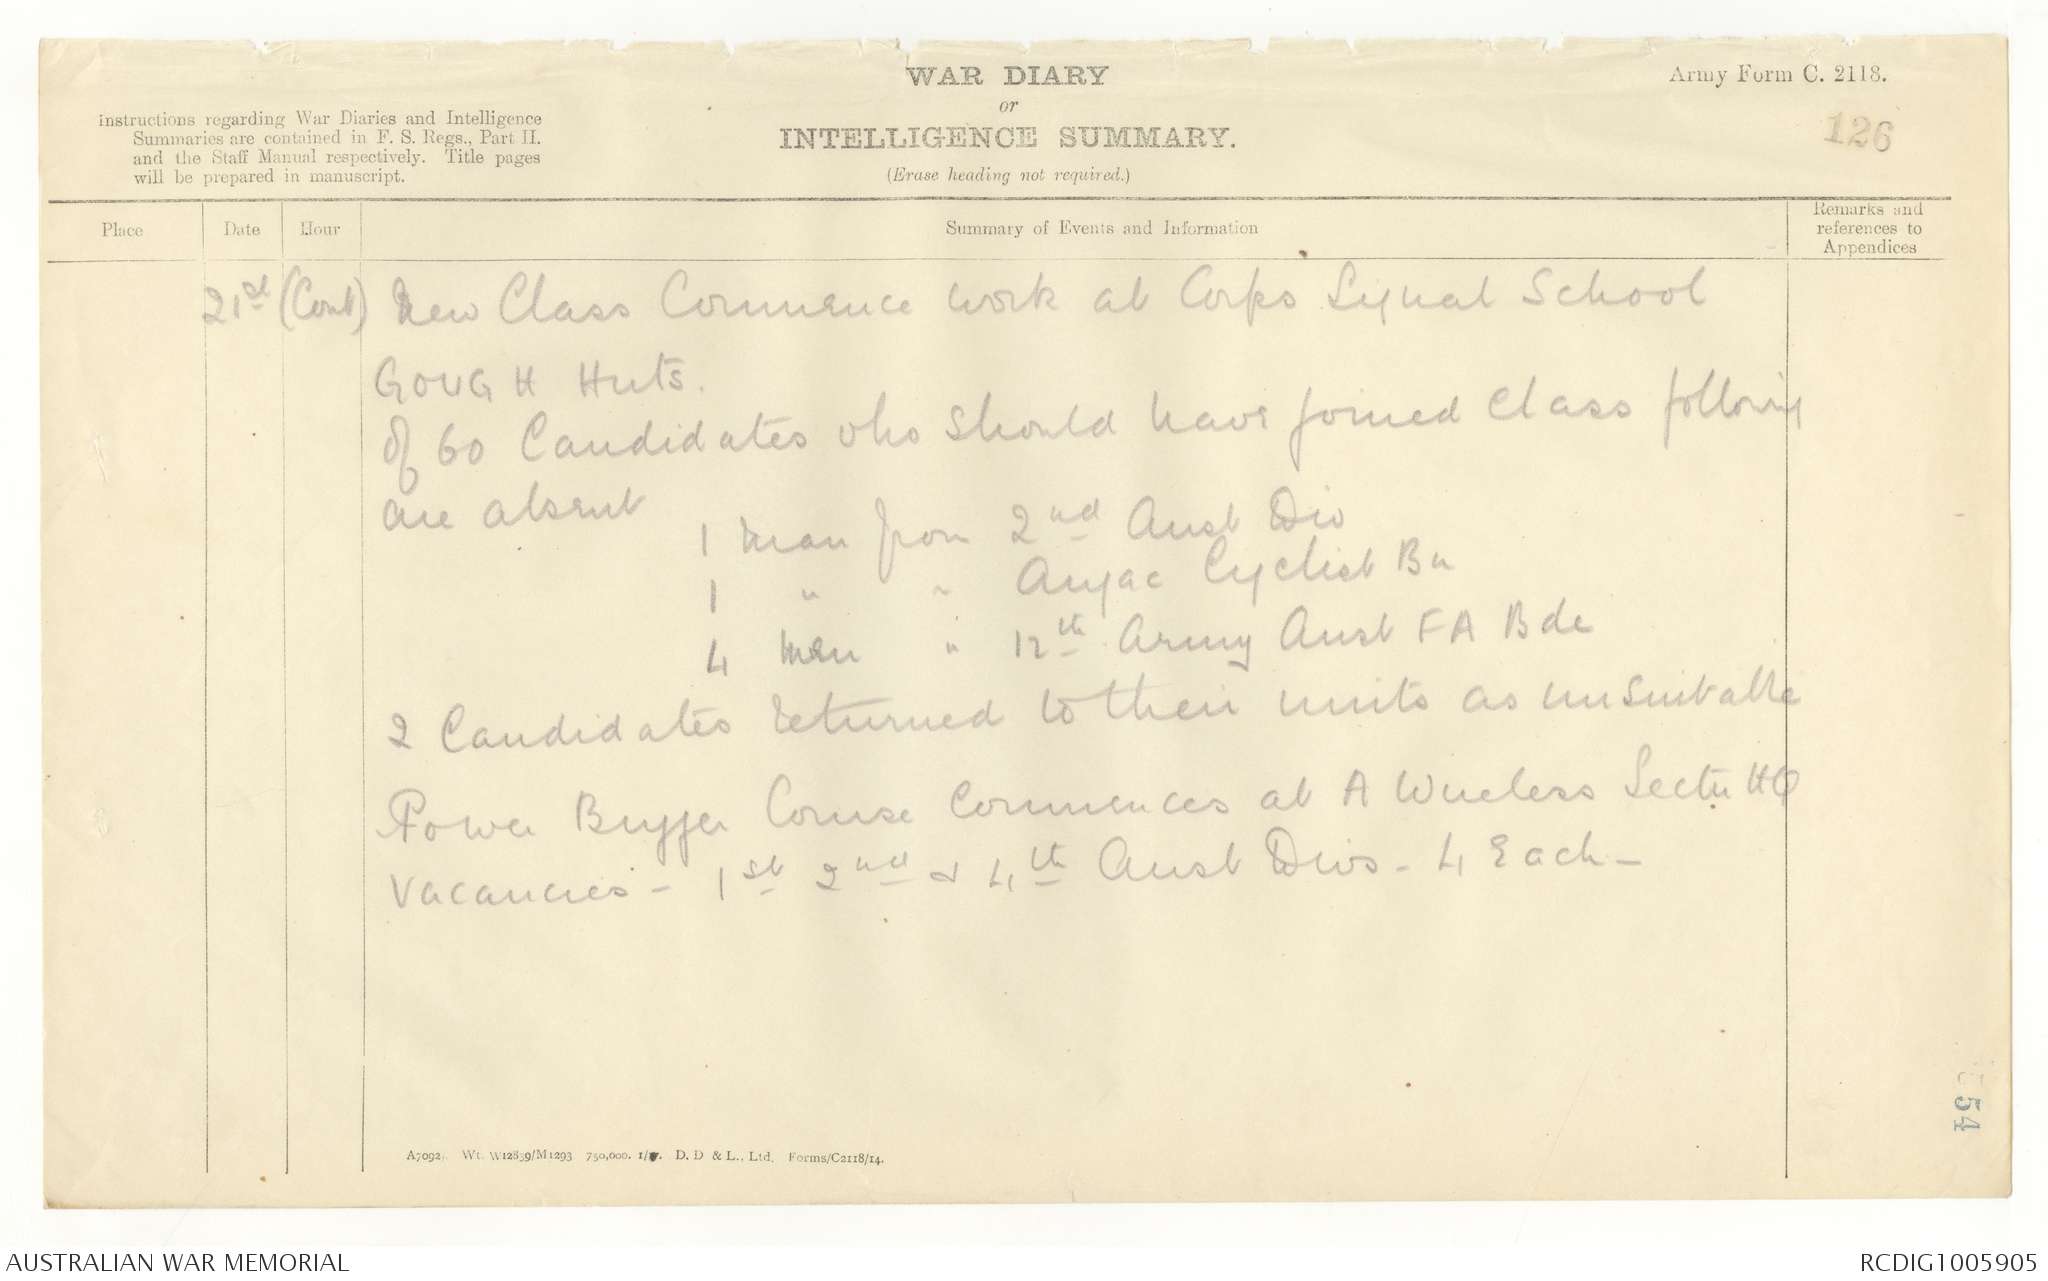 WAR DIARY
or
INTELLIGENCE SUMMARY.
(Erase heading not required.)
Army Form C. 2118.
126
Instructions regarding War Diaries and Intelligence
Summaries are contained in F. S. Regs., Part II.
and the Staff Manual respectively. Title pages
will be prepared in manuscript.
Place
Date
Hour
Summary of Events and Information
Remarks and
references to
Appendices
21st (Cont) New Class Commence work at Corps Signal School
GOUGH Huts.
Of 60 Candidates who should have joined class following
are absent
1 man from 2nd Aust Div
1 " " Anzac Cyclist Bn
4 men " 12th Army Aust F A Bde
2 Candidates returned to their units as unsuitable
Power Buzzer Course commences at A Wireless Sectn HQ
Vacancies - 1st 2nd & 4th Aust Divs - 4 Each -
A7092. Wt. W12839/M1293 750,000. 1/17. D. D & L., Ltd. Forms/C2118/14.
54
AUSTRALIAN WAR MEMORIAL
RCDIG1005905